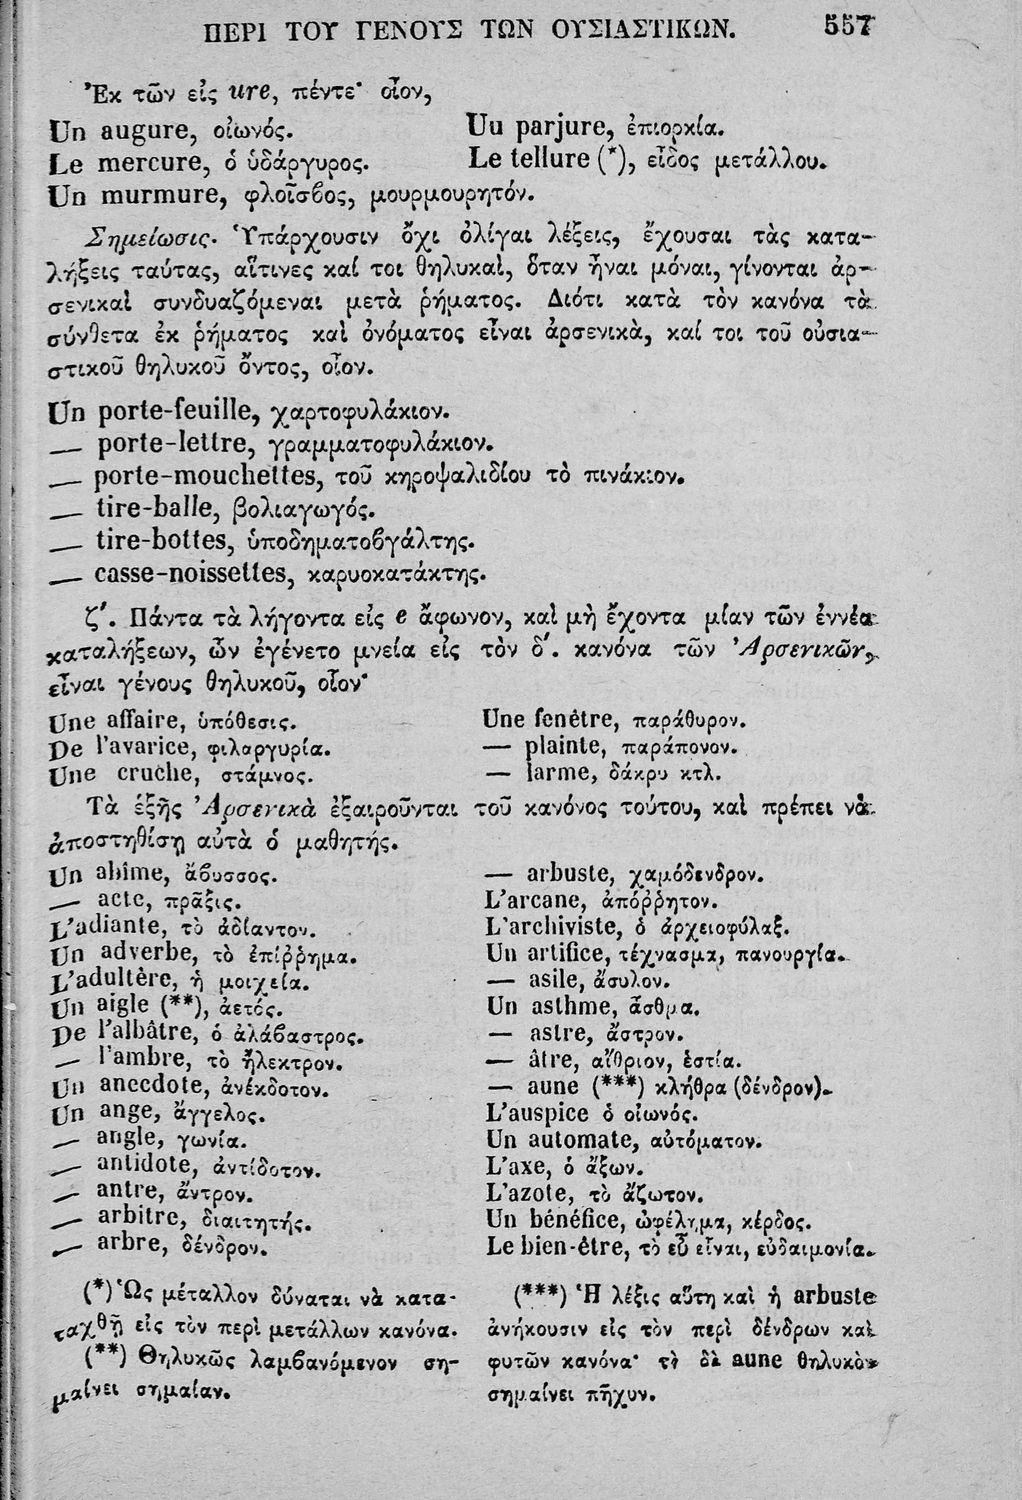 ΠΕΡΙ ΤΟΥ ΓΕΝΟΥΣ ΤΩΝ ΟΥΣΙΑΣΤΙΚΩΝ. 557
Ἐκ τῶν εἰς ure, πέντε· οἷον,
Un augure, οἰωνός.
Le mercure, ὁ ὑδάργυρος.
Un murmure, φλοῖσϐος, μουρμουρητόν.
Uu parjure, ἐπιορκία.
Le tellure (*), εἶδος μετάλλου.
Σημείωσις. Ὑπάρχουσιν ὄχι ὀλίγαι λέξεις, ἔχουσαι τὰς κατα-
λήξεις ταύτας, αἵτινες καί τοι θηλυκαὶ, ὅταν ἦναι μόναι, γίνονται ἀρ-
σενικαὶ συνδυαζόμεναι μετὰ ῥήματος. Διότι κατὰ τὸν κανόνα τὰ
σύνθετα ἐκ ῥήματος καὶ ὀνόματος εἶναι ἀρσενικὰ, καί τοι τοῦ οὐσια-
στικοῦ θηλυκοῦ ὄντος, οἷον.
Un porte-feuille, χαρτοφυλάκιον.
— porte-lettre, γραμματοφυλάκιον.
— porte-mouchettes, τοῦ κηροψαλιδίου τὸ πινάκιον.
— tire-balle, βολιαγωγός.
— tire-bottes, ὑποδηματοϐγάλτης.
— casse-noissettes, καρυοκατάκτης.
ζ'. Πάντα τὰ λήγοντα εἰς e ἄφωνον, καὶ μὴ ἔχοντα μίαν τῶν ἐννέα
καταλήξεων, ὧν ἐγένετο μνεία εἰς τὸν δ'. κανόνα τῶν Ἀρσενικῶν,
εἶναι γένους θηλυκοῦ, οἷον·
Une affaire, ὑπόθεσις.
De l'avarice, φιλαργυρία.
Une cruche, στάμνος.
Une fenêtre, παράθυρον.
— plainte, παράπονον.
— larme, δάκρυ κτλ.
Τὰ ἑξῆς Ἀρσενικὰ ἐξαιροῦνται τοῦ κανόνος τούτου, καὶ πρέπει νὰ
ἀποστηθίσῃ αὐτὰ ὁ μαθητής.
Un abîme, ἄϐυσσος.
— acte, πρᾶξις.
L'adiante, τὸ ἀδίαντον.
Un adverbe, τὸ ἐπίῤῥημα.
L'adultère, ἡ μοιχεία.
Un aigle (**), ἀετός.
De l'albâtre, ὁ ἀλάϐαστρος.
— l'ambre, τὸ ἤλεκτρον.
Un anecdote, ἀνέκδοτον.
Un ange, ἄγγελος.
— angle, γωνία.
— antidote, ἀντίδοτον.
— antre, ἄντρον.
— arbitre, διαιτητής.
— arbre, δένδρον.
— arbuste, χαμόδενδρον.
L'arcane, ἀπόῤῥητον.
L'archiviste, ὁ ἀρχειοφύλαξ.
Un artifice, τέχνασμα, πανουργία.
— asile, ἄσυλον.
Un asthme, ἆσθμα.
— astre, ἄστρον.
— âtre, αἴθριον, ἑστία.
— aune (***) κλήθρα (δένδρον).
L'auspice ὁ οἰωνός.
Un automate, αὐτόματον.
L'axe, ὁ ἄξων.
L'azote, τὸ ἄζωτον.
Un bénéfice, ὠφέλημα, κέρδος.
Le bien-être, τὸ εὖ εἶναι, εὐδαιμονία.
(*) Ὡς μέταλλον δύναται νὰ κατα-
ταχθῇ εἰς τὸν περὶ μετάλλων κανόνα.
(**) Θηλυκῶς λαμϐανόμενον ση-
μαίνει σημαίαν.
(***) Ἡ λέξις αὕτη καὶ ἡ arbuste
ἀνήκουσιν εἰς τὸν περὶ δένδρων καὶ
φυτῶν κανόνα· τὸ δὲ aune θηλυκὸν
σημαίνει πῆχυν.